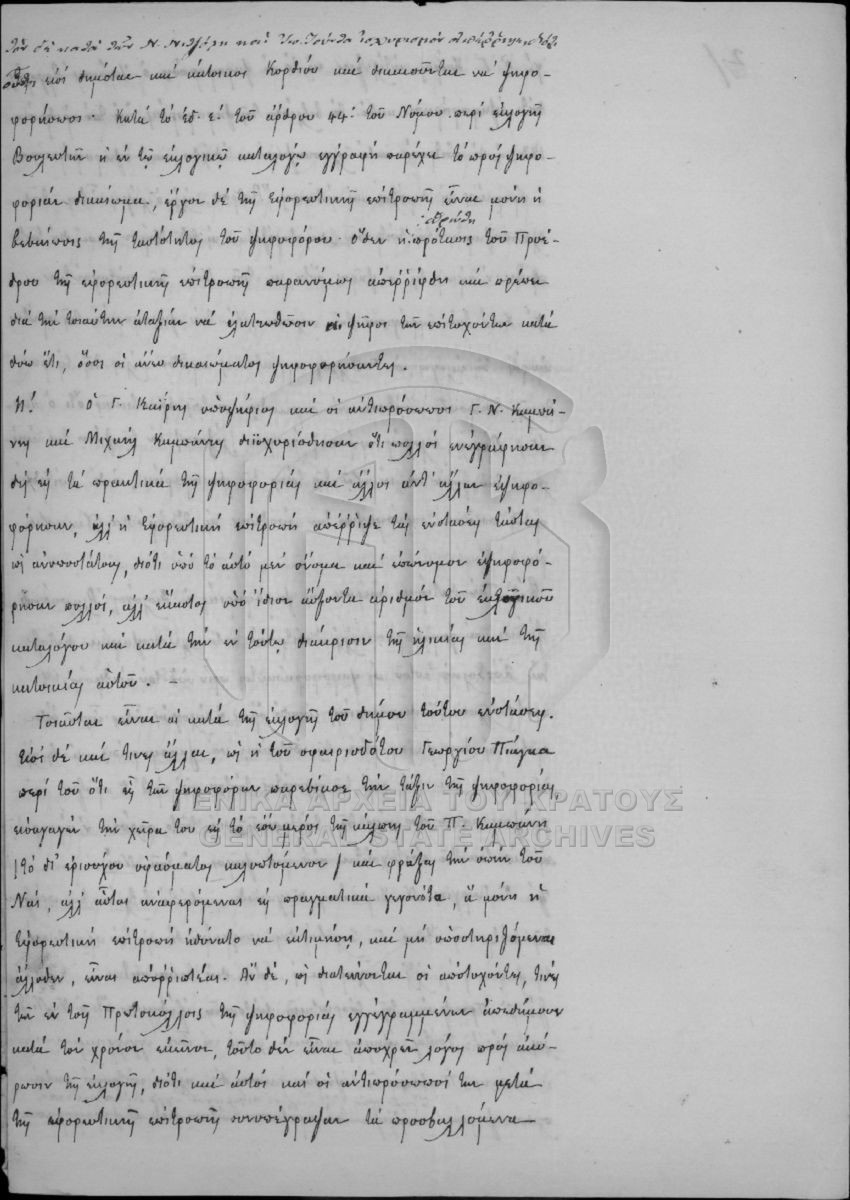 τὸν δὲ κατὰ τῶν Ν. καὶ ἰσχυρισμὸν ἀπέρριψε, διότι
οὗτοι εἰσὶ δημόται καὶ κάτοικοι Κορθίου καὶ δικαιοῦνται νὰ ψηφο-
φορήσωσι. Κατὰ τὸ ἐδ. ε! τοῦ ἄρθρου 44! τοῦ Νόμου περὶ ἐκλογῆς
Βουλευτῶν ἡ ἐν τῷ ἐκλογικῷ καταλόγῳ ἐγγραφὴ παρέχει τὸ πρὸς ψηφο-
φορίαν δικαίωμα, ἔργον δὲ τῆς Ἐφορευτικῆς ἐπιτροπῆς εἶναι μόνη ἡ
βεβαίωσις τῆς ταυτότητος τοῦ ψηφοφόρου. ὅθεν ἡ πρότασις τοῦ Προέ-
δρου τῆς ἐφορευτικῆς ἐπιτροπῆς παρανόμως ἀπερρίφθη καὶ πρέπει
διὰ τὴν τοιαύτην ἀταξίαν νὰ ἐλαττωθῶσιν αἱ ψῆφοι τῶν ἐπιτυχόντων κατὰ
δύω ἔτι, ὅσοι οἱ ἄνευ δικαιώματος ψηφοφορήσαντες.
Η! ὁ Γ. Καΐρης ὑποψήφιος καὶ οἱ ἀντιπρόσωποι Γ. Ν. Καμπά-
νης καὶ Μιχαὴλ Καμπάνης διϊσχυρίσθησαν ὅτι πολλοὶ ἐνεγράφησαν
δὶς εἰς τὰ πρακτικὰ τῆς ψηφοφορίας καὶ ἄλλοι ἀντ' ἄλλων ἐψηφο-
φόρησαν, ἀλλ' ἡ Ἐφορευτικὴ ἐπιτροπὴ ἀπέρριψε τὰς ἐνστάσεις ταύτας
ὡς ἀνυποστάτους, διότι ὑπὸ τὸ αὐτὸ μὲν ὄνομα καὶ ἐπώνυμον ἐψηφοφό-
ρησαν πολλοί, ἀλλ' ἕκαστος ὑπὸ ἴδιον αὔξοντα ἀριθμὸν τοῦ ἐκλογικοῦ
καταλόγου καὶ κατὰ τὴν ἐν τούτῳ διάκρισιν τῆς ἡλικίας καὶ τῆς
κατοικίας αὐτοῦ. –
Τοιαῦται εἶναι αἱ κατὰ τῆς ἐκλογῆς τοῦ δήμου τούτου ἐνστάσεις.
Εἰσὶ δὲ καί τινες ἄλλαι, ὡς ἡ τοῦ σφαιριοδότου Γεωργίου
περὶ τοῦ ὅτι εἷς τῶν ψηφοφόρων παρεβίασε τὴν τάξιν τῆς ψηφοφορίας
εἰσαγαγὼν τὴν χεῖρά του εἰς τὸ μέρος τῆς κάλπης τοῦ Π. Καμπάνη
(τὸ δι' ἐριούχου ὑφάσματος καλυπτόμενον) καὶ φράξας τὴν ὀπὴν τοῦ
Ναί, ἀλλ' αὗται ἀναφερόμεναι εἰς πραγματικὰ γεγονότα, ἃ μόνη ἡ
Ἐφορευτικὴ ἐπιτροπὴ ἠδύνατο νὰ ἐκτιμήσῃ, καὶ μὴ ὑποστηριζόμεναι
ἄλλοθεν, εἶναι ἀπορριπτέαι. Ἂν δέ, ὡς διατείνονται οἱ ἀποτυχόντες, τινὲς
τῶν ἐν τοῖς Πρωτοκόλλοις τῆς ψηφοφορίας ἐγγεγραμμένων ἀπεδήμουν
κατὰ τὸν χρόνον ἐκεῖνον, τοῦτο δὲν εἶναι ἀποχρῶν λόγος πρὸς ἀκύ-
ρωσιν τῆς ἐκλογῆς, διότι καὶ αὐτοὶ καὶ οἱ ἀντιπρόσωποί των μετὰ
τῆς ἐφορευτικῆς ἐπιτροπῆς συνυπέγραψαν τὰ προσβαλλόμενα
ΓΕΝΙΚΑ ΑΡΧΕΙΑ ΤΟΥ ΚΡΑΤΟΥΣ
GENERAL STATE ARCHIVES